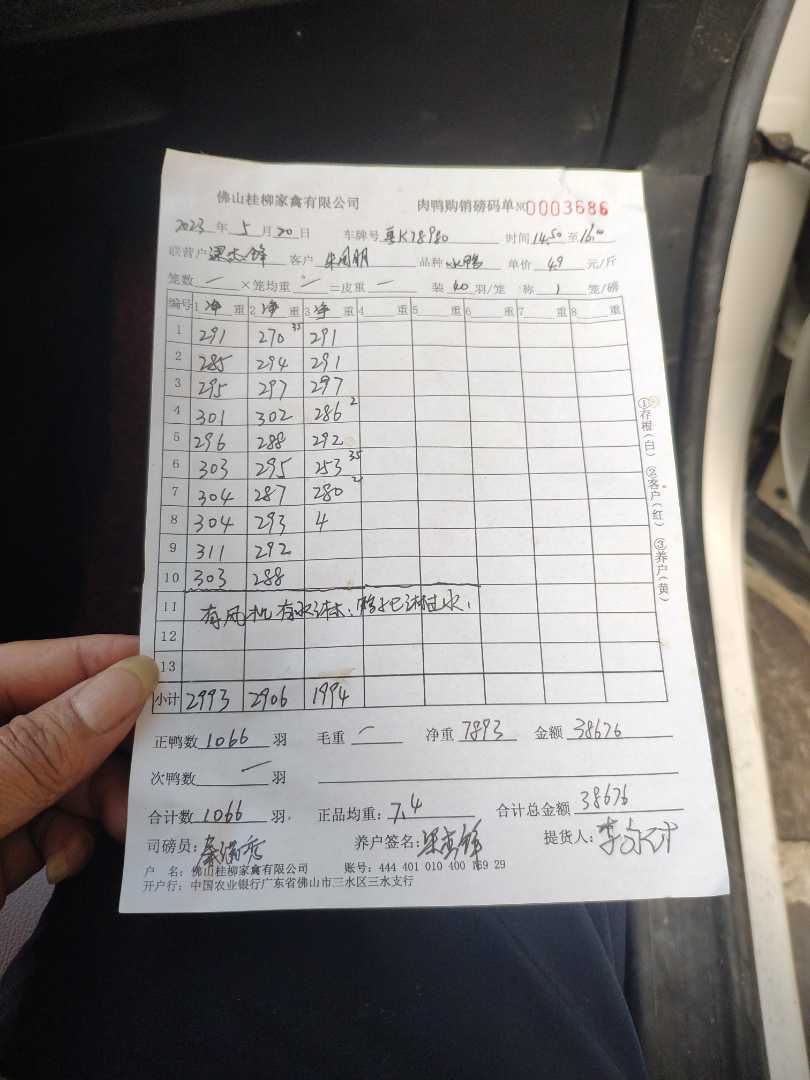 佛山桂柳家禽有限公司 肉鸭购销磅码单 № 0003686
2023 年 5 月 20 日 车牌号 粤K78980 时间 14:50 至 16:00
联营户 梁杰锋 客户 朱同朋 品种 水鸭 单价 4.9 元/斤
笼数 一 ×笼均重 一 =皮重 一 装 40 羽/笼 称 1 笼/磅
编号 1 净 重 2 净 重 3 净 重 4 重 5 重 6 重 7 重 8 重
1 291 270 35 291
2 285 294 291
3 295 297 297
4 301 302 286 2
5 296 288 292
6 303 295 253 35
7 304 287 280
8 304 293 4
9 311 292
10 303 288
11 有风机
12
13
小计 2993 2906 1994
正鸭数 1066 羽 毛重 一 净重 7893 金额 38676
次鸭数 一 羽
合计数 1066 羽. 正品均重: 7.4 合计总金额 38676
司磅员: 养户签名: 梁杰锋 提货人:
户 名: 佛山桂柳家禽有限公司 账号: 444 401 010 400 169 29
开户行: 中国农业银行广东省佛山市三水区三水支行
①存根(白) ②客户(红) ③养户(黄)